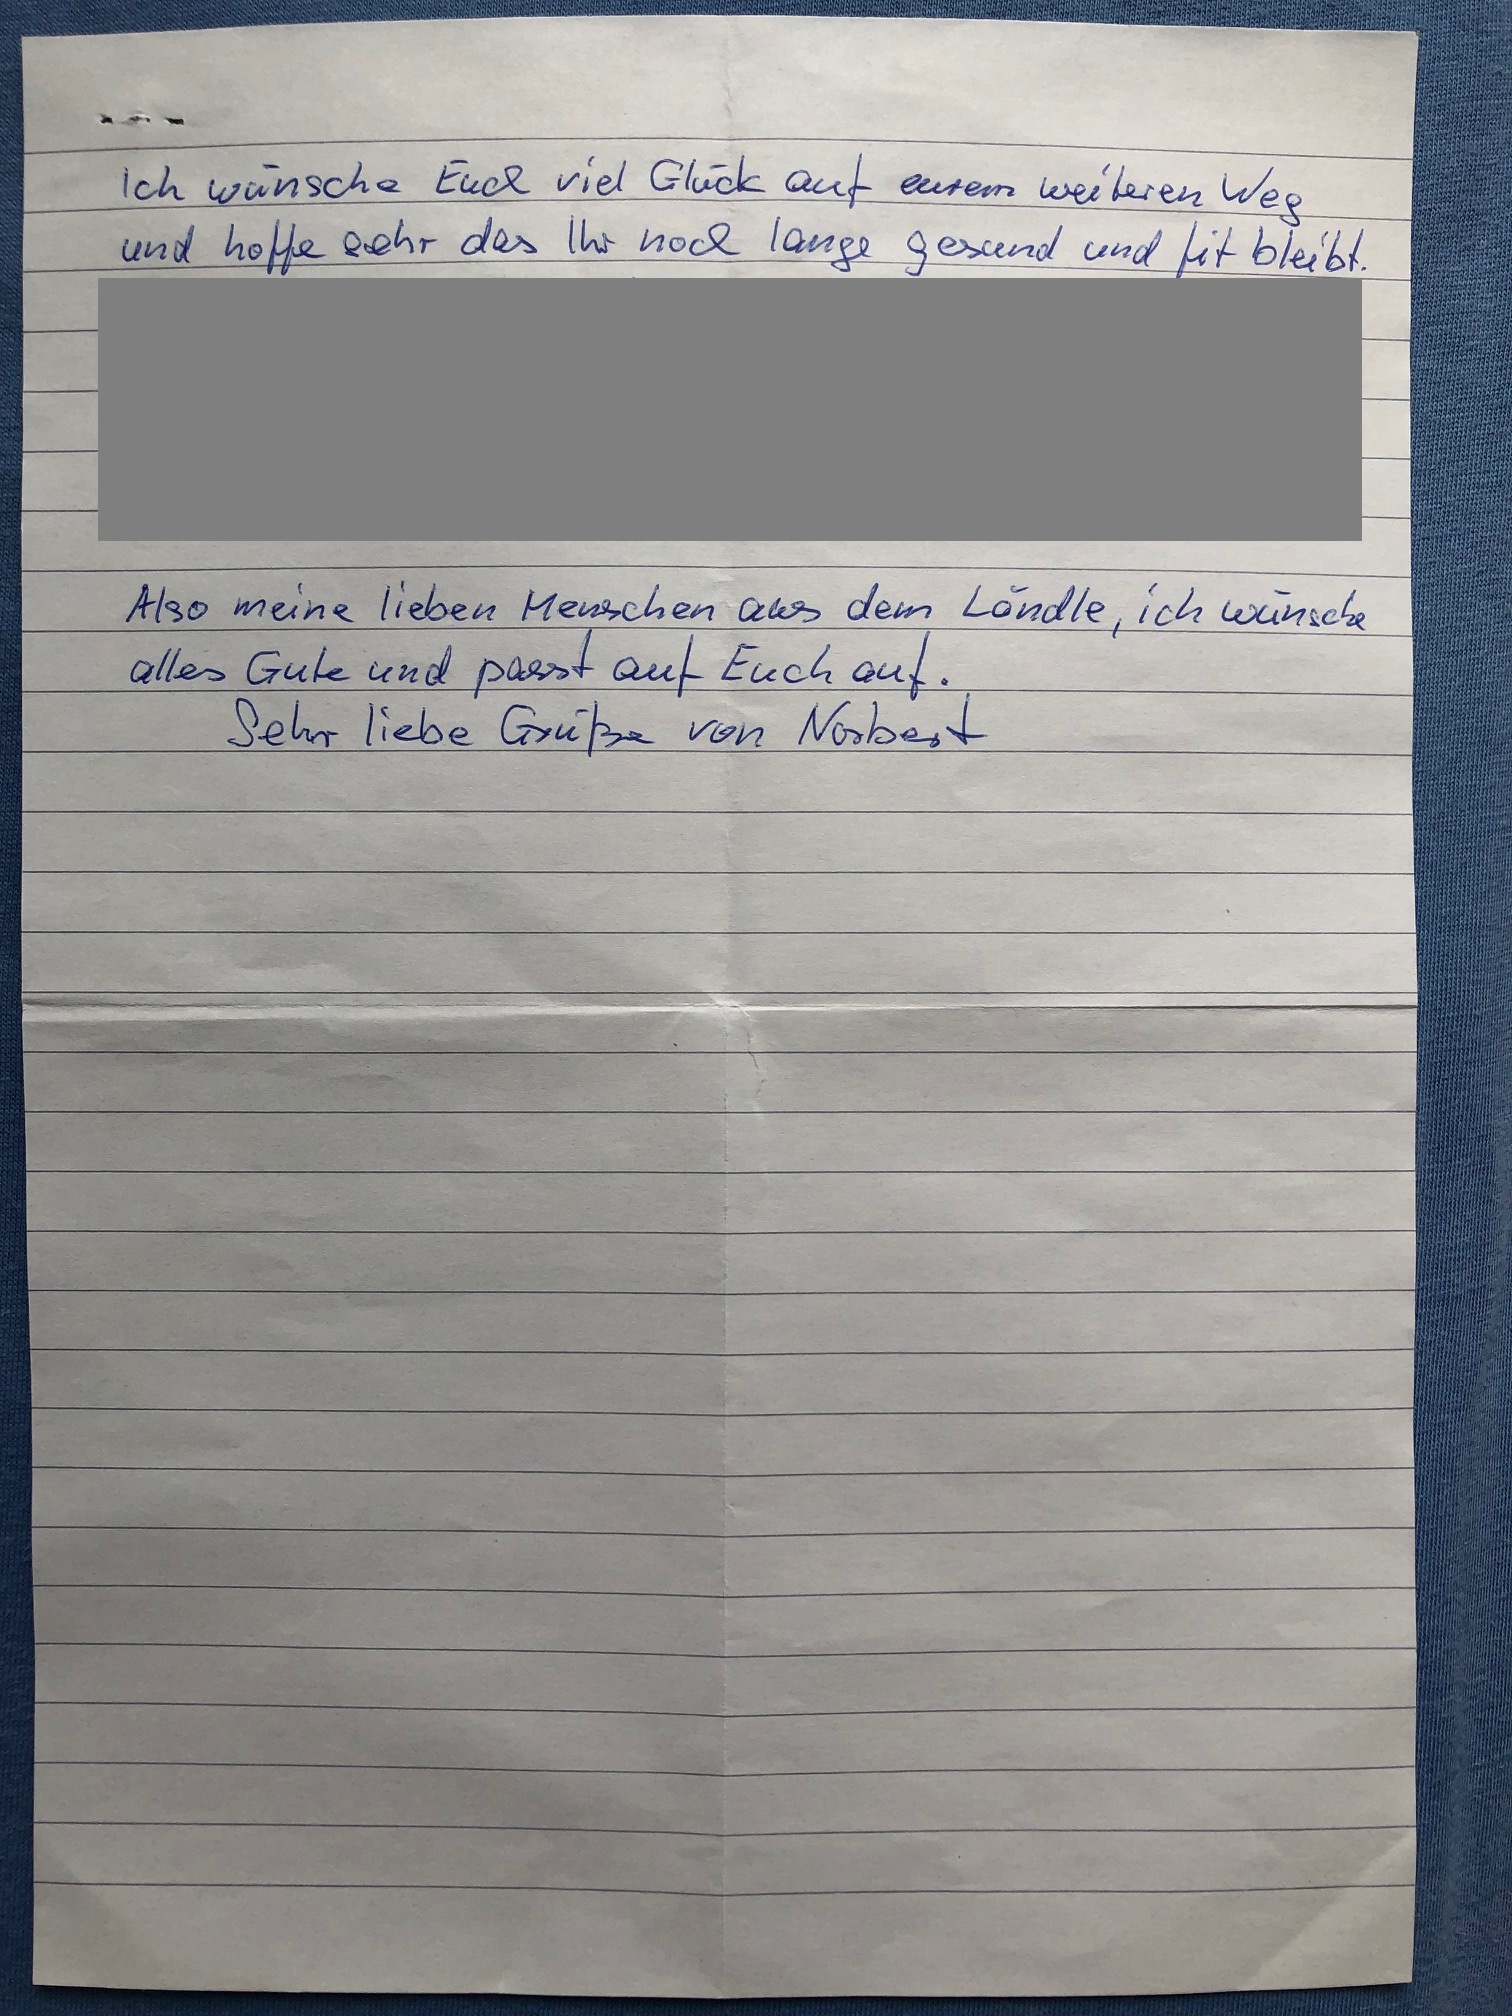 Ich wünsche Euch viel Glück auf eurem weiteren Weg
und hoffe sehr das Ihr noch lange gesund und fit bleibt.
Also meine lieben Menschen aus dem Ländle, ich wünsche
alles Gute und passt auf Euch auf.
Sehr liebe Grüße von Norbert